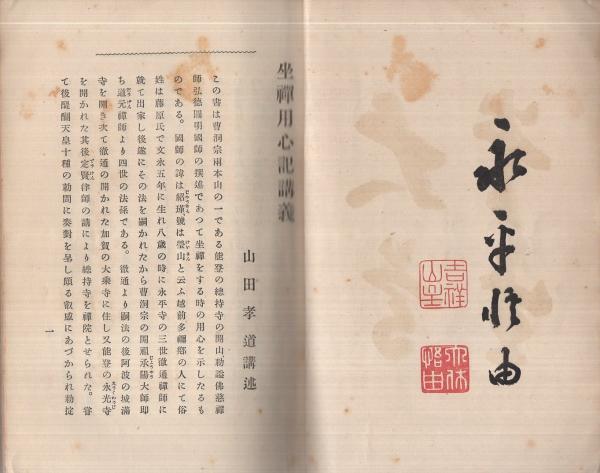 永平悟由
吉祥山主
大休悟由
坐禪用心記講義
山田孝道講述
この書は曹洞宗兩本山の一である能登の總持寺の開山勅謚佛慈禪
師弘德圓明國師の撰述であつて坐禪をする時の用心を示したるも
のである。國師の諱は紹瑾號は瑩山と云ふ越前多禰鄕の人にて俗
姓は藤原氏で文永五年に生れ八歲の時に永平寺の三世徹通禪師に
就て出家し後遂にその法を嗣がれたから曹洞宗の開祖承陽大師即
ち道元禪師より四世の法孫である。徹通より嗣法の後阿波の城滿
寺を開き次で徹通の開かれた加賀の大乘寺に住し又能登の永光寺
を開かれた其後定賢律師の請により總持寺を禪院とせられた。嘗
て後醍醐天皇十種の勅問に奏對を呈し頗る叡感にあづかられ勅掟
一